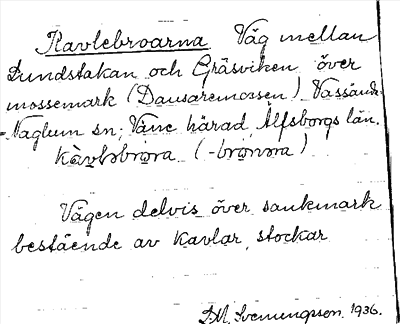 Kavlebroarna Väg mellan
Sundstakan och Gräsviken över
mossemark (Dansaremossen) Vassända-
-Naglum sn; Väne härad, Älfsborgs län.
(-brønøra)
Vägen delvis över sankmark
bestående av kavlar, stockar
D.M. Svenungsson. 1936.